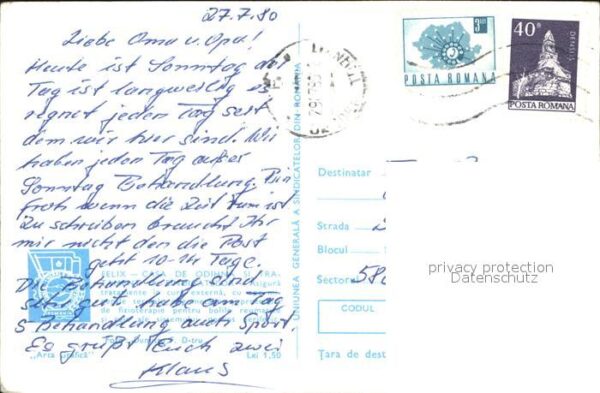 27.7.80
Liebe Oma u. Opa!
Heute ist Sonntag der
Tag ist langweilig es
regnet jeden Tag seit
dem wir hier sind. Wir
haben jeden Tag außer
Sonntag Behandlung. Bin
froh wenn die Zeit rum ist
Zu schreiben braucht Ihr
mir nicht den die Post
geht 10-14 Tage.
Die Behandlung sind
sehr gut habe am Tag
5 Behandlung auch Sport.
Es grüßt Euch zwei
Klaus
3 LEI
POSTA ROMANA
40 B
DENSUS
POSTA ROMANA
UNIUNEA GENERALĂ A SINDICATELOR DIN ROMÂNIA
FELIX - CASA DE ODIHNĂ ȘI TRA-
"Arta grafică"
Lei 1,50
Destinatar
Strada
Blocul
Sector
CODUL
Țara de dest
privacy protection
Datenschutz